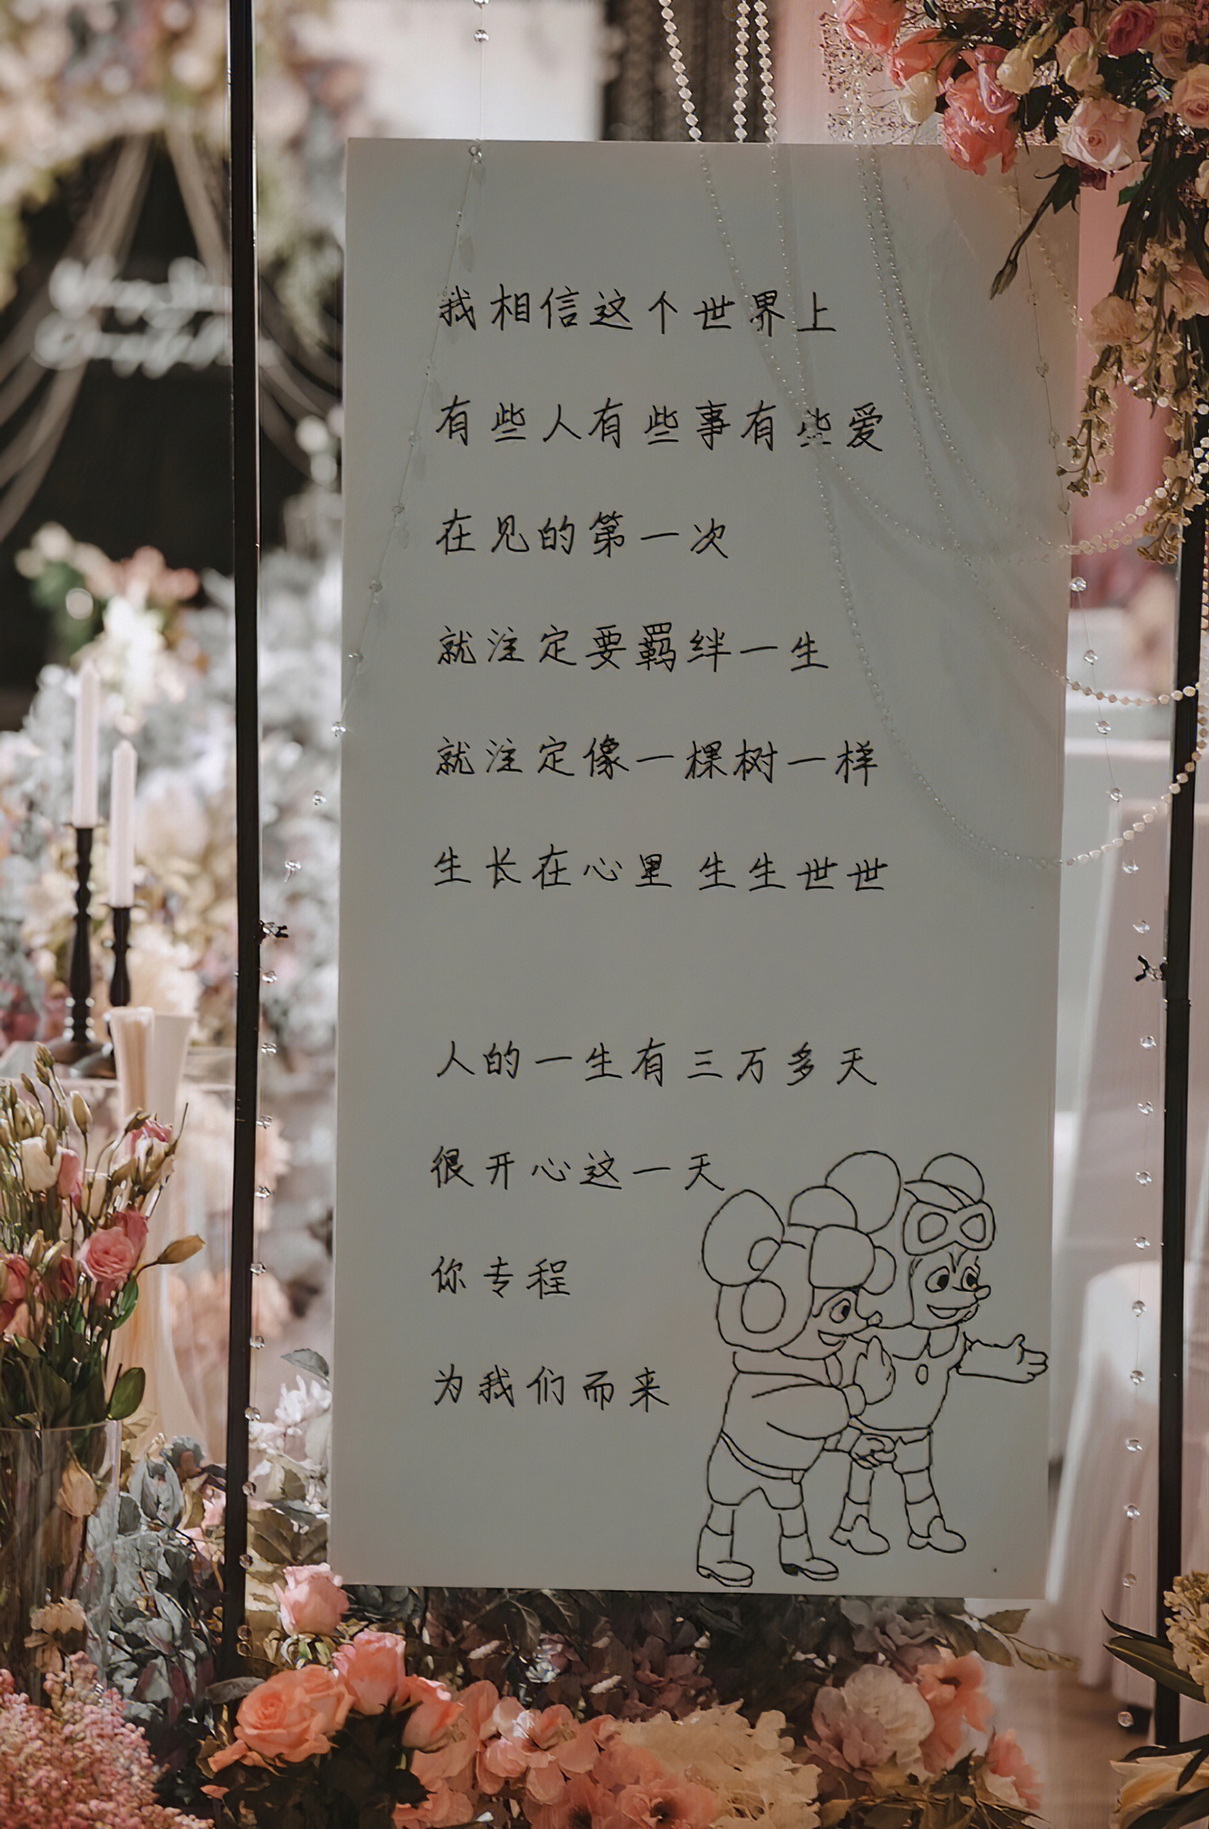 我相信这个世界上
有些人有些事有些爱
在见的第一次
就注定要羁绊一生
就注定像一棵树一样
生长在心里 生生世世
人的一生有三万多天
很开心这一天
你专程
为我们而来